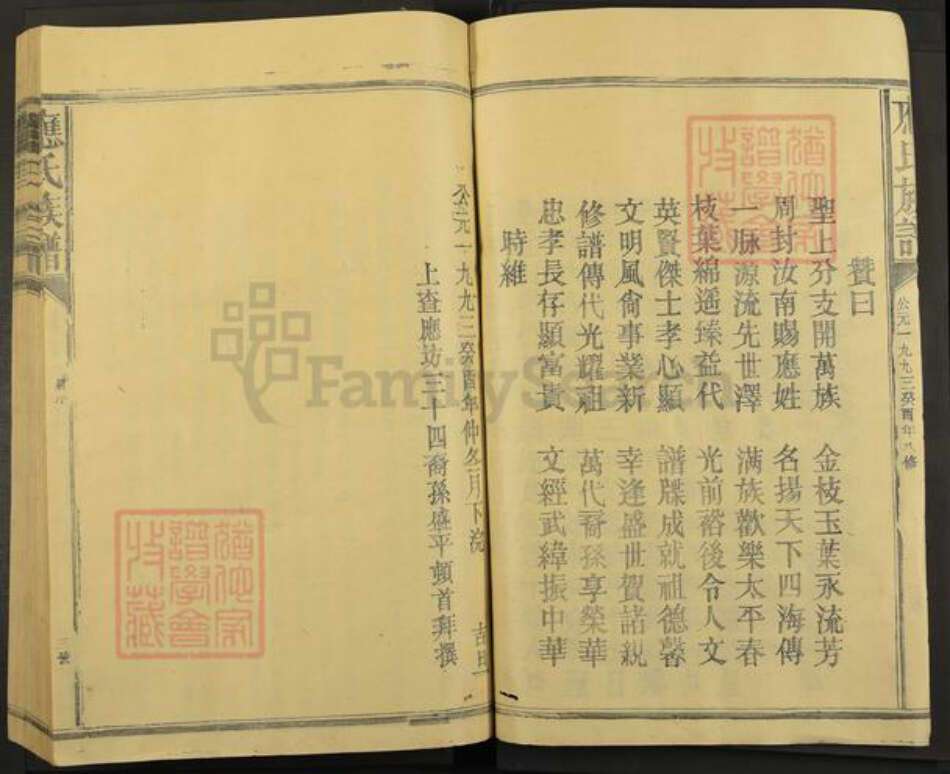 應氏族譜
公元一九九三癸酉年
修
贊曰
聖上分支開萬族 金枝玉葉永流芳
周封汝南賜應姓 名揚天下四海傳
一脉源流先世澤 滿族歡樂太平春
枝葉綿遥臻益代 光前裕後令人文
英賢傑士孝心顯 譜牒成就祖德馨
文明風尙事業新 幸逢盛世賀諸親
修譜傳代光耀祖 萬代裔孫享榮華
忠孝長存顯富貴 文經武緯振中華
時維
公元一九九三癸酉年仲冬月下浣 吉旦
上查應坊三十四裔孫盛平頓首拜撰
應氏族譜
譜學會
收藏
譜學會
收藏
FamilySearch